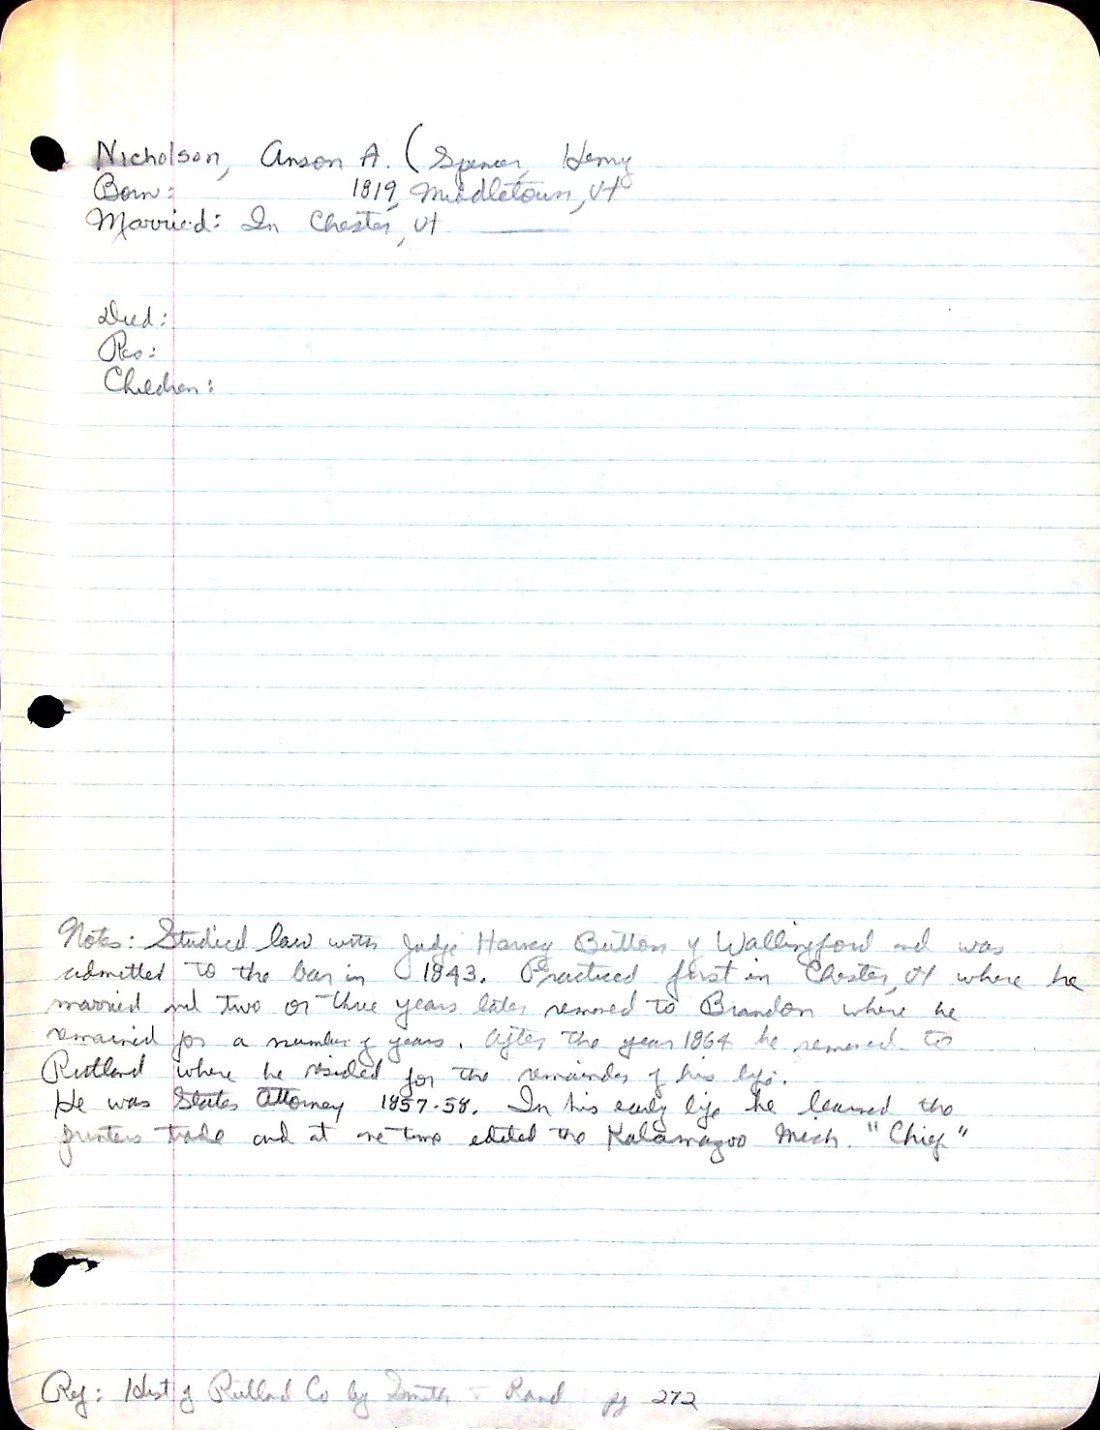 Nicholson, Anson A. (Spencer, Henry
Born: 1819, Middletown, Vt
Married: In Chester, Vt
Died:
Res:
Children:
Notes: Studied law with Judge Harvey Button of Wallingford and was
admitted to the bar in 1843. Practiced first in Chester, Vt where he
married and two or three years later removed to Brandon where he
remained for a number of years. After the year 1864 he removed to
Rutland where he resided for the remainder of his life.
He was States Attorney 1857-58. In his early life he learned the
printers trade and at one time edited the Kalamazoo Mich. "Chief"
Ref: Hist of Rutland Co by Smith & Rand pg 272